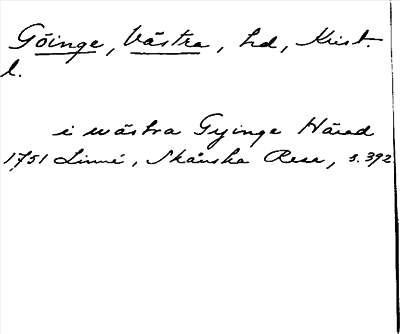 Göinge, Västra, hd, Krist.
l.
i wästra Gyinge Härad
1751 Linné, Skånska Resa, s. 392